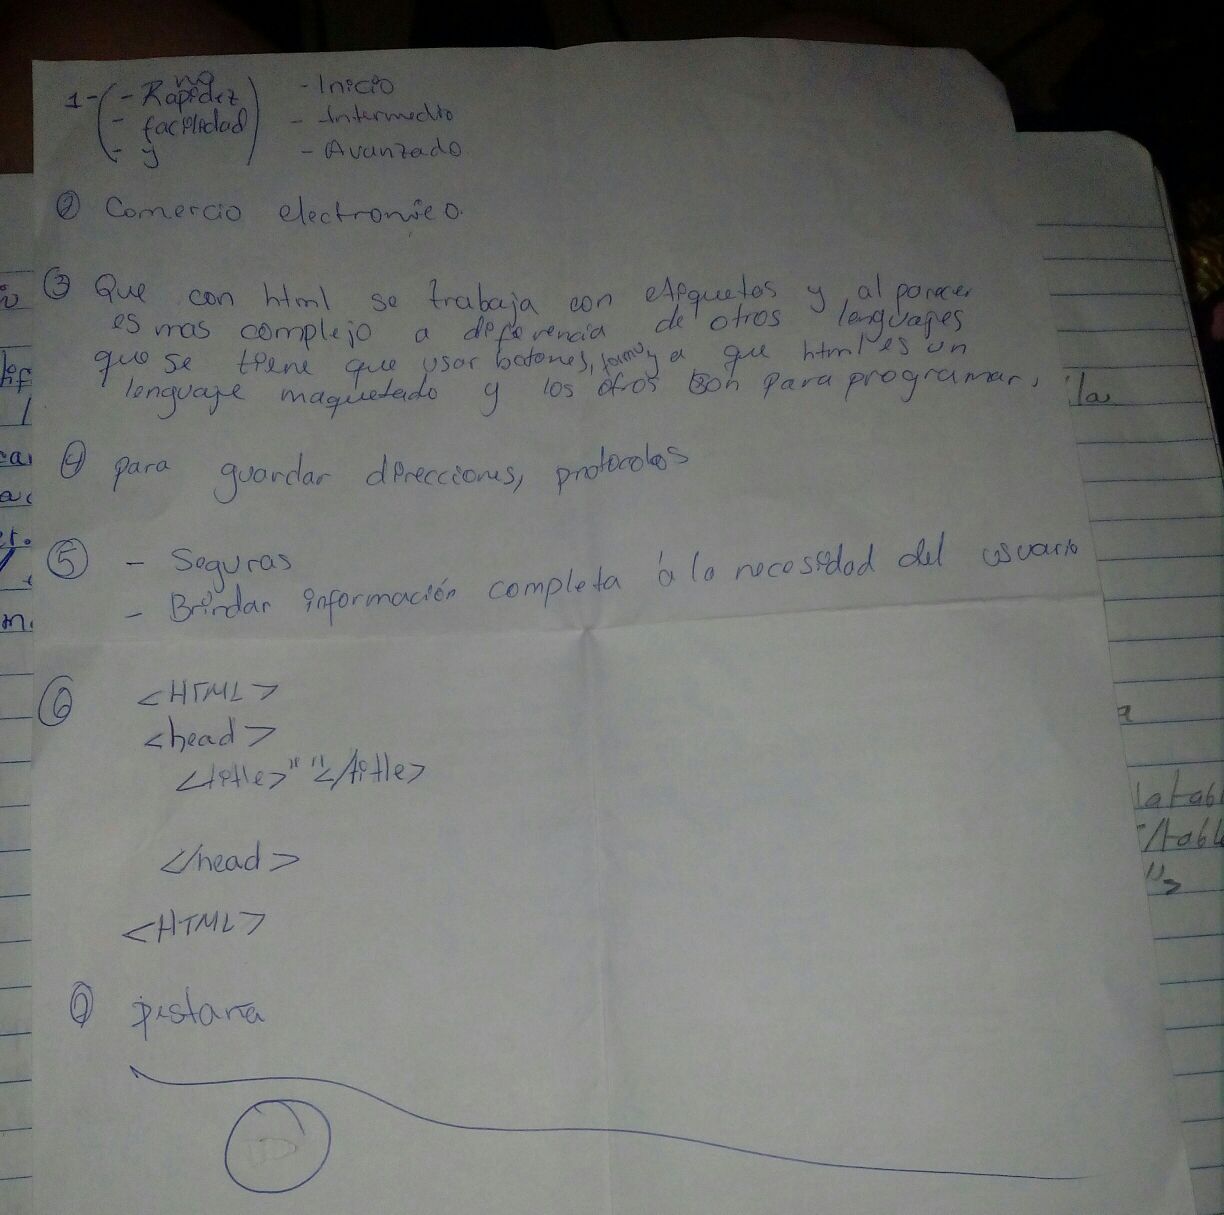 no
1- ( - Rapidez ) - Inicio
- facilidad - Intermedio
- y - Avanzado
② Comercio electronico.
③ Que con html se trabaja con etiquetas y al parecer
es mas complejo a diferencia de otros lenguajes
que se tiene que usar botones, ya que html es un
lenguaje maquetado y los otros son para programar,
④ para guardar direcciones, protocolos
⑤ - Seguras
- Brindar información completa a la necesidad del usuario
⑥ <HTML>
<head>
<title>" "</title>
</head>
<HTML>
pestaña
la